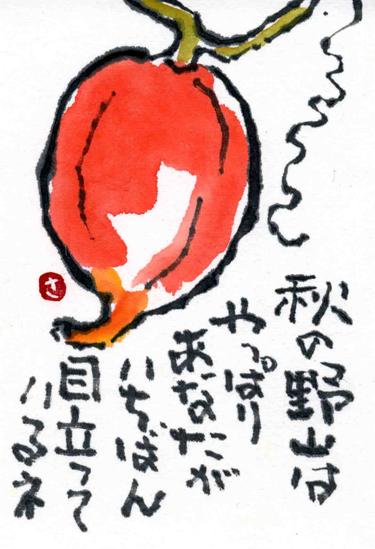 秋の野山は
やっぱり
あなたが
いちばん
目立って
ハルネ
さ